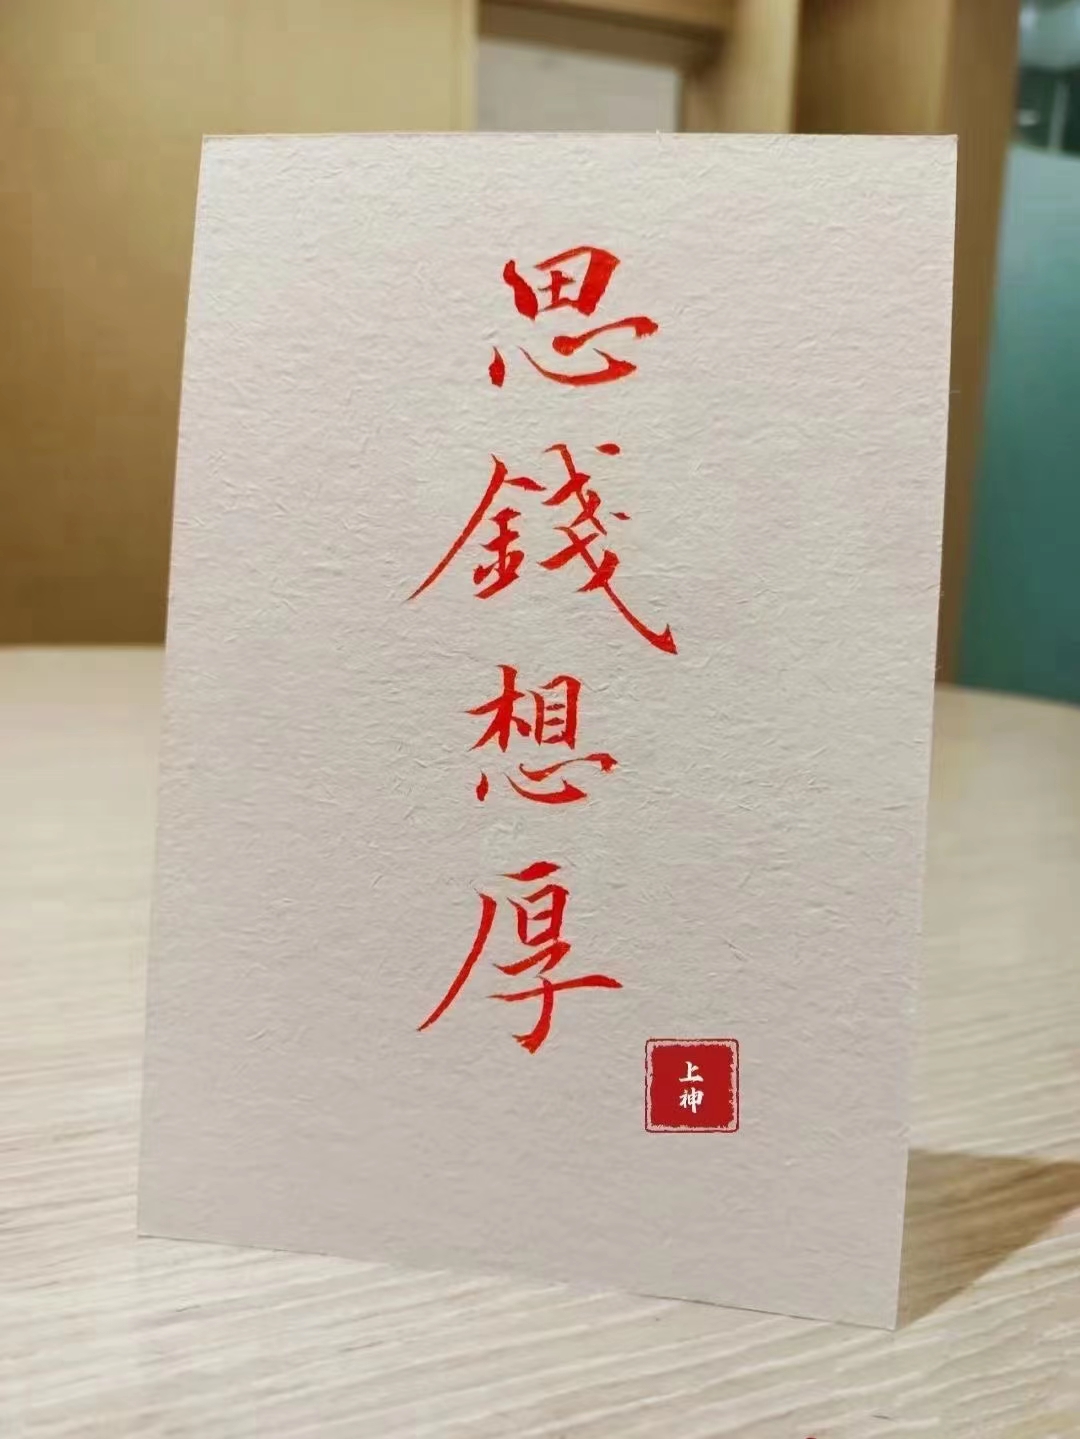 思錢想厚
上神